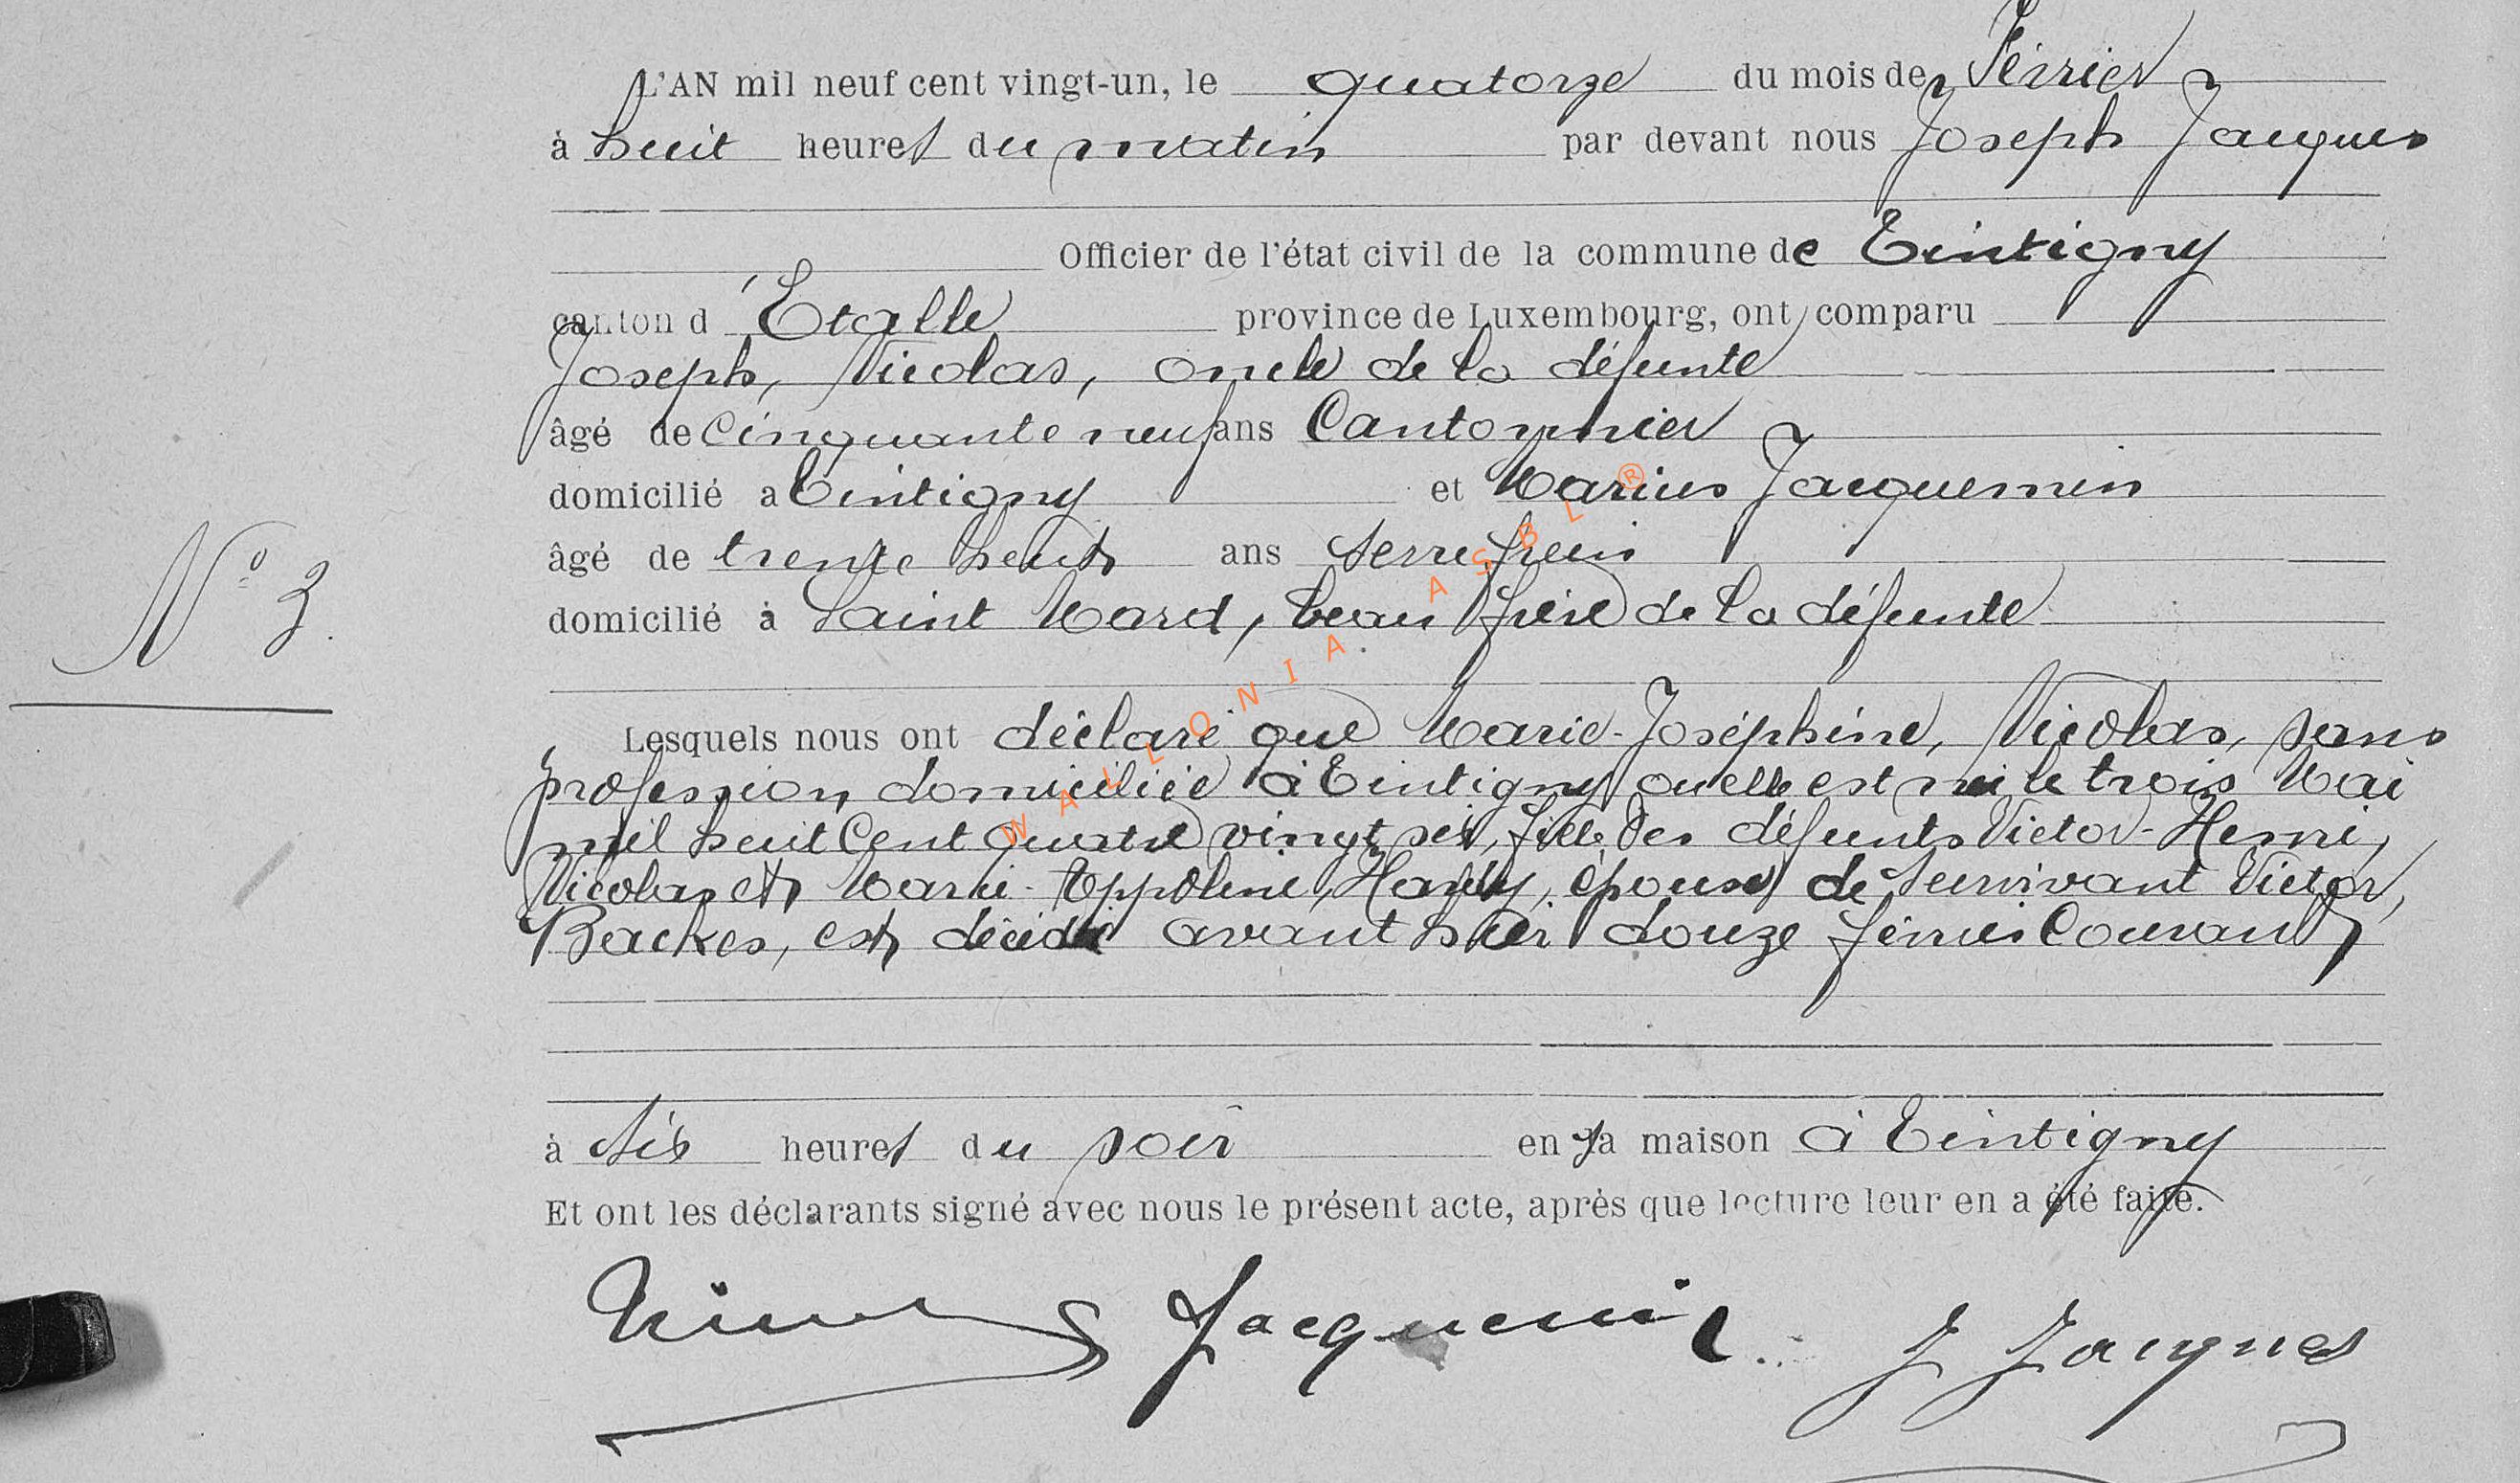 L'AN mil neuf cent vingt-un, le quatorze du mois de Février
à huit heures du matin par devant nous Joseph Jacques
Officier de l'état civil de la commune de Tintigny
canton d'Etalle province de Luxembourg, ont comparu
Joseph, Nicolas, oncle de la défunte
âgé de cinquante neuf ans Cantonnier
domicilié a Tintigny et Marius Jacquemin
âgé de trente huit ans serre frein
domicilié à Saint Mard, beau frère de la défunte
N° 3
Lesquels nous ont déclaré que Marie-Joséphine, Nicolas, sans
profession, domiciliée à Tintigny où elle est née le trois Mai
mil huit Cent quatre vingt six, fille des défunts Victor-Henri,
Nicolas et Marie-Appoline, Hardy, épouse de survivant Victor,
Backes, est décédée avant hier douze février Courant
à six heures du soir en sa maison à Tintigny
Et ont les déclarants signé avec nous le présent acte, après que lecture leur en a été faite.
Jacquemin J Jacques
WALLONIA ASBL ®